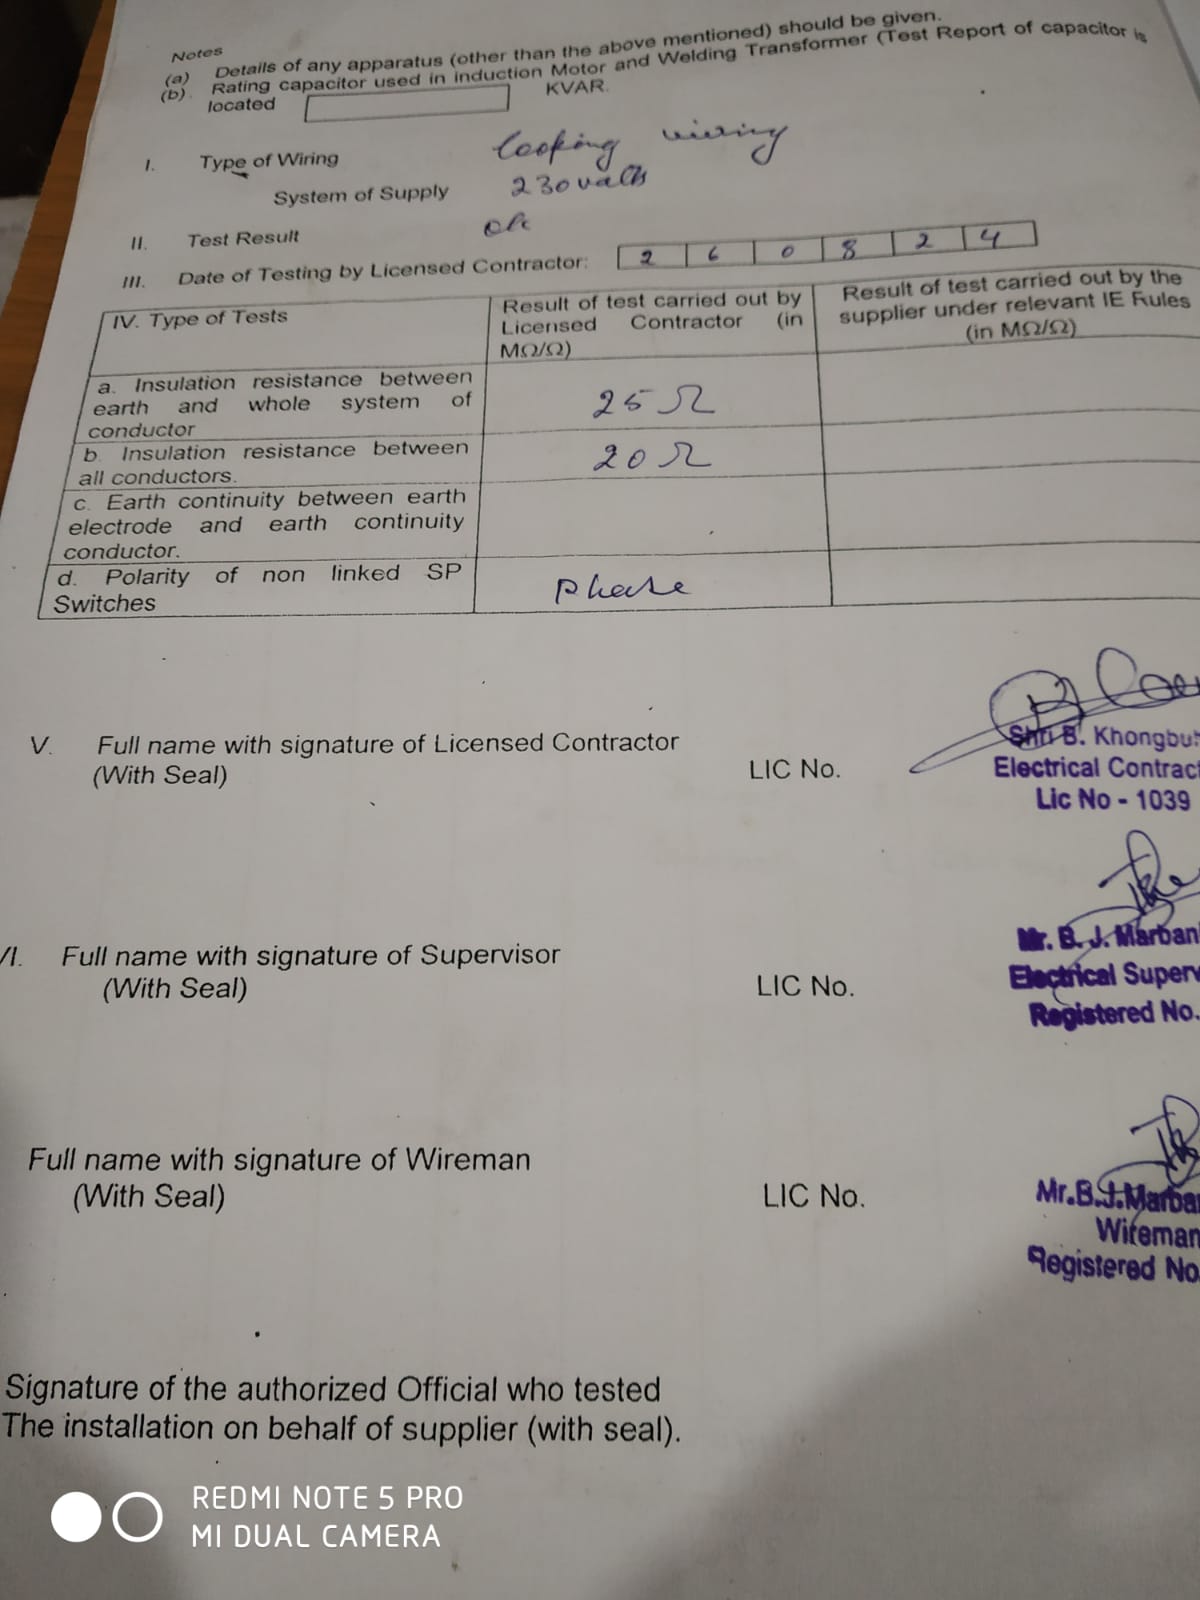 Notes
(a) Details of any apparatus (other than the above mentioned) should be given.
(b). Rating capacitor used in induction Motor and Welding Transformer (Test Report of capacitor is
located KVAR.
I. Type of Wiring looping wiring
System of Supply 230 volts
II. Test Result ok
III. Date of Testing by Licensed Contractor: 2 6 0 8 2 4
IV. Type of Tests
Result of test carried out by
Licensed Contractor (in
MΩ/Ω)
Result of test carried out by the
supplier under relevant IE Rules
(in MΩ/Ω)
a. Insulation resistance between
earth and whole system of
conductor
25 Ω
b. Insulation resistance between
all conductors.
20 Ω
c. Earth continuity between earth
electrode and earth continuity
conductor.
d. Polarity of non linked SP
Switches
Phase
V. Full name with signature of Licensed Contractor
(With Seal)
LIC No.
Shri B. Khongbu
Electrical Contrac
Lic No - 1039
VI. Full name with signature of Supervisor
(With Seal)
LIC No.
Mr. B. J. Marban
Electrical Superv
Registered No.
Full name with signature of Wireman
(With Seal)
LIC No.
Mr.B.J.Marba
Wireman
Registered No
Signature of the authorized Official who tested
The installation on behalf of supplier (with seal).
REDMI NOTE 5 PRO
MI DUAL CAMERA